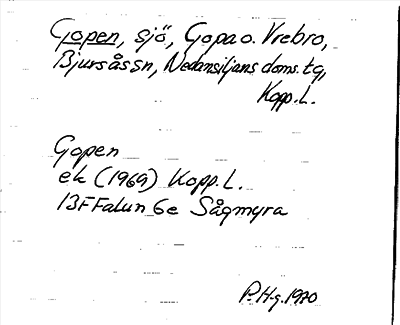 Gopen, sjö, Gopa o. Vrebro,
Bjursåssn, Nedansiljans doms. tg,
Kopp. L.
Gopen
ek (1969) Kopp. L.
13F Falun 6e Sågmyra
P. H-g. 1970